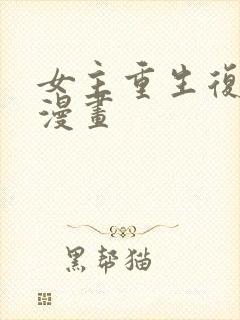 女主重生復
漫畫
黑幫猫